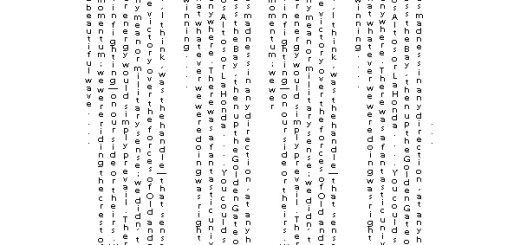 . . .
s madness in any direction, at any h
ss the Bay, then up the Golden Gate o
s Altos or La Honda. . . . You could s
nywhere. There was a fantastic univ
at whatever we were doing was right
inning. . . .
, I think, was the handle—that sens
e victory over the forces of Old and
ny mean or military sense; we didn't
r energy would simply prevail. Ther
n fighting—on our side or theirs. W
omentum; we wer
s madness in any direction, at any h
ss the Bay, then up the Golden Gate o
s Altos or La Honda. . . . You could s
nywhere. There was a fantastic univ
at whatever we were doing was right
inning. . . .
, I think, was the handle—that sens
e victory over the forces of Old and
ny mean or military sense; we didn't
r energy would simply prevail. Ther
n fighting—on our side or theirs
omentum; we were riding the crest o
beautiful wave. . . .